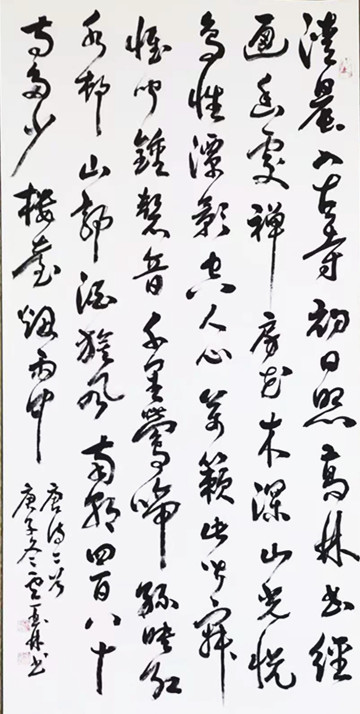 清晨入古寺初日照高林曲經
通幽處禅房花木深山光悦
鸟性潭影空人心萬籁此皆寂
惟闻鍾磬音千里鶯啼绿映红
水村山郭酒旗风南朝四百八十
寺多少楼臺烟雨中
唐诗二首
庚子冬雲林书